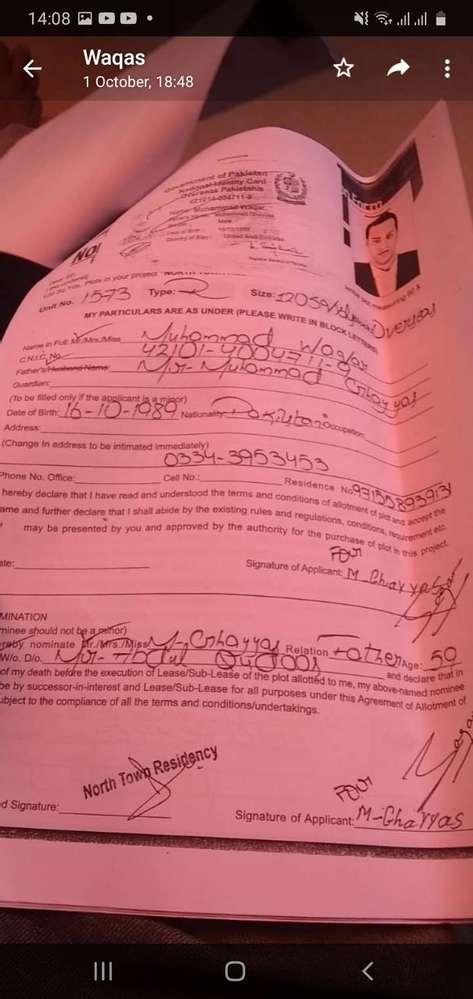 14:08
Waqas
1 October, 18:48
Government of Pakistan
National Identity Card
Overseas Pakistanis
Name: Muhammad Waqar
Male
United Arab Emirates
NO
Plots in your project
Unit No. 1573 Type: R Size: 120 Overseas
MY PARTICULARS ARE AS UNDER (PLEASE WRITE IN BLOCK LETTERS)
Name in Full: Mr./Mrs./Miss Muhammad Waqar
C.N.I.C. No. 42101-4004711-9
Father's/Husband Name: Mr. Muhammad Ghayyas
Guardian:
(To be filled only if the applicant is a minor)
Date of Birth: 16-10-1989 Nationality: Pakistani Occupation:
Address:
(Change in address to be intimated immediately)
0334-3953453
Phone No. Office: Cell No.: Residence No.
hereby declare that I have read and understood the terms and conditions of allotment of plot and accept the
ame and further declare that I shall abide by the existing rules and regulations, conditions, requirement etc.
may be presented by you and approved by the authority for the purchase of plot in this project.
ate: Signature of Applicant: M Ghayyas
MINATION
minee should not be a minor)
ereby nominate Mr./Mrs./Miss M-Ghayyas Relation Father Age: 50
W/o. D/o. Mr-Abdul and declare that in
of my death before the execution of Lease/Sub-Lease of the plot allotted to me, my above-named nominee
be by successor-in-interest and Lease/Sub-Lease for all purposes under this Agreement of Allotment of
ubject to the compliance of all the terms and conditions/undertakings.
North Town Residency
ed Signature: Signature of Applicant: M-Ghayyas